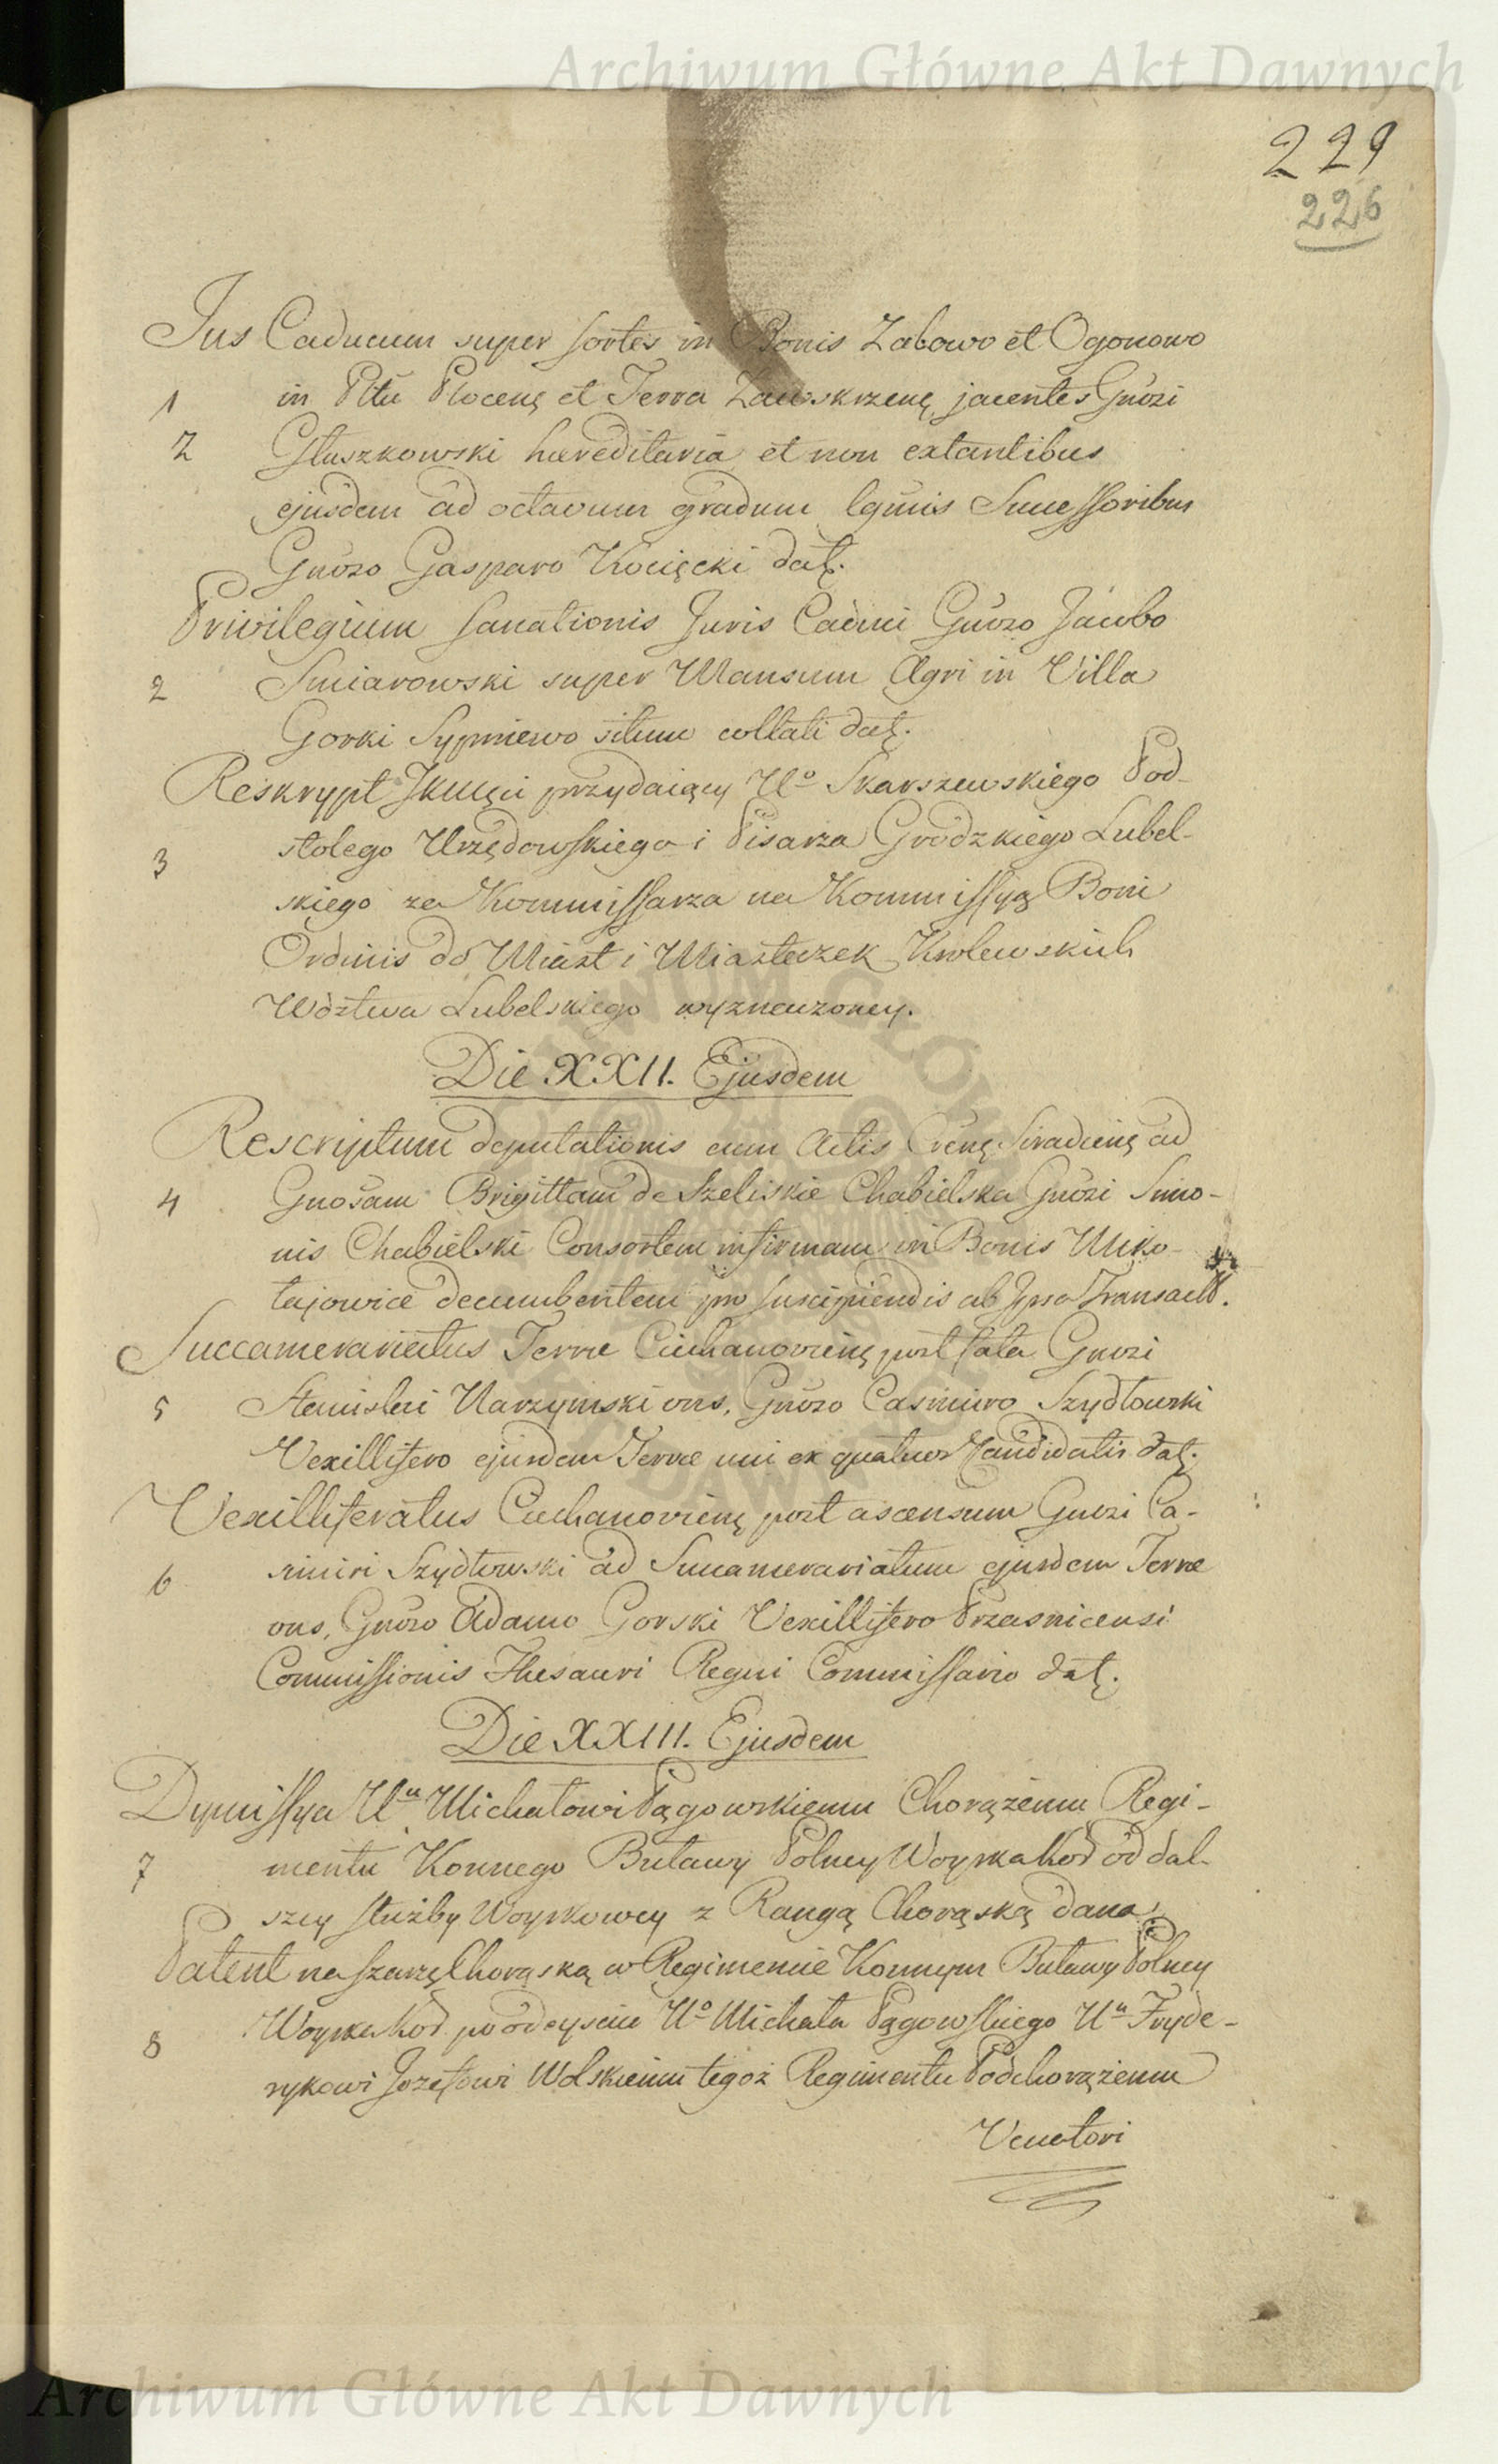 Archiwum Główne Akt Dawnych
229
226
Jus Caducum super sortes in Bonis Zabowo et Ogonowo
1 in Pttu Plocenę et Terra Zawskrzenę jacentes Gnrosi
2 Głuszkowski haereditaria et non extantibus
ejusdem ad octavum gradum lgmis Successoribus
Gnroso Gasparo Kocięcki datę.
Privilegium sanationis Juris Caduci Gnroso Jacobo
2 Smiarowski super Mansum Agri in Villa
Gorki Sypniewo situm collati datę.
Reskrypt JKMęci przydaiący Uo Skarszewskiego Pod-
3 stolego Urzędowskiego i Pisarza Grodzkiego Lubel-
skiego za Kommissarza na Kommissyą Boni
Ordinis do Miast i Miasteczek Krolewskich
Wdztwa Lubelskiego wyznaczoney.
Die XXII. Ejusdem
Rescriptum deputationis cum Actis Crenę Siradienę ad
4 Gnosam Brigittam de Szeliskie Chabielska Gnrosi Simo-
nis Chabielski Consortem infirmam in Bonis Miko-
łajowice decumbentem pro suscipiendis ab Ipsa Transactt.
Succamerariatus Terrae Ciechanovienę post fata Gnrosi
5 Stanislai Narzymski vns, Gnroso Casimiro Szydłowski
Vexillifero ejusdem Terrae uni ex quatuor Candidatis datę.
Vexilliferatus Ciechanovienę post ascensum Gnrosi Ca-
6 simiri Szydłowski ad Succamerariatum ejusdem Terrae
vns, Gnroso Adamo Gorski Vexillifero Przasnicensi
Commissionis Thesauri Regni Commissario datę.
Die XXIII. Ejusdem
Dymissya Uu Michałowi Pągowskiemu Chorążemu Regi-
7 mentu Konnego Buławy Polney Woyska Kor od dal-
szey służby Woyskowey z Rangą Chorąską dana.
Patent na szarzę Chorąską w Regimencie Konnym Buławy Polney
8 Woyska Kor po odeysciu Uo Michała Pągowskiego Uu Fryde-
rykowi Jozefowi Wolskiemu tegoż Regimentu Podchorążemu
Venatori
Archiwum Główne Akt Dawnych